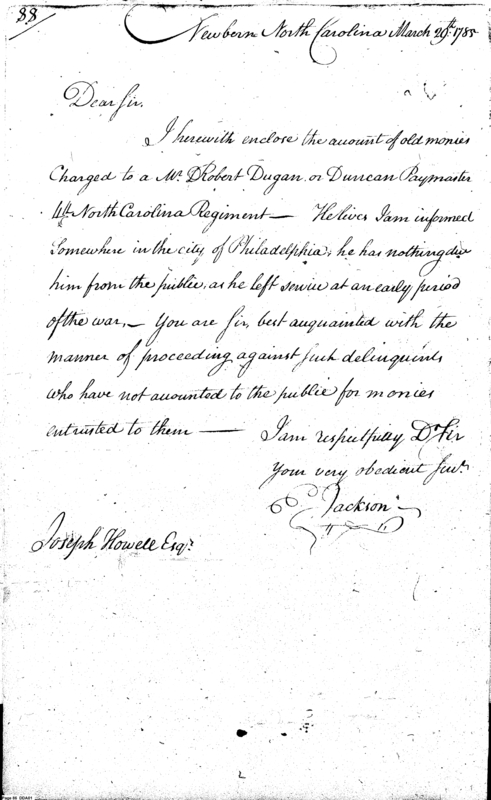 88
Newbern North Carolina March 29th. 1785
Dear Sir.
I herewith enclose the account of old monies
Charged to a Mr. Robert Dugan or Duncan Paymaster
4th North Carolina Regiment — He lives I am informed
Somewhere in the city of Philadelphia, he has nothing due
him from the public, as he left service at an early period
of the war. — You are Sir, best acquainted with the
manner of proceeding against such delinquents
who have not accounted to the public for monies
entrusted to them — I am respectfully Dr Sir
Your very obedient Servt.
Jackson
Joseph Howell Esqr.